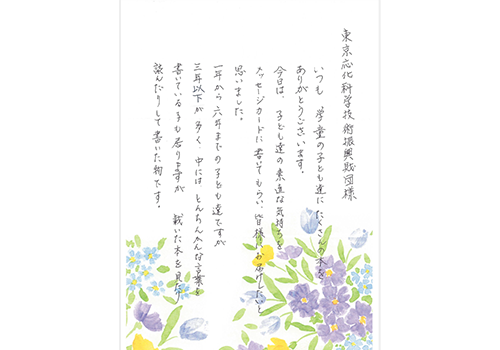 東京応化科学技術振興財団様
いつも 学童の子ども達に たくさんの本を
ありがとうございます。
今日は、子ども達の素直な気持ちを
メッセージカードに書いてもらい、皆様にお届けしたいと
思いました。
一年から六年までの子ども達ですが
三年以下が多く、中には、とんちんかんな言葉を
書いている子も居りますが 戴いた本を見たり
読んだりして書いた物です。